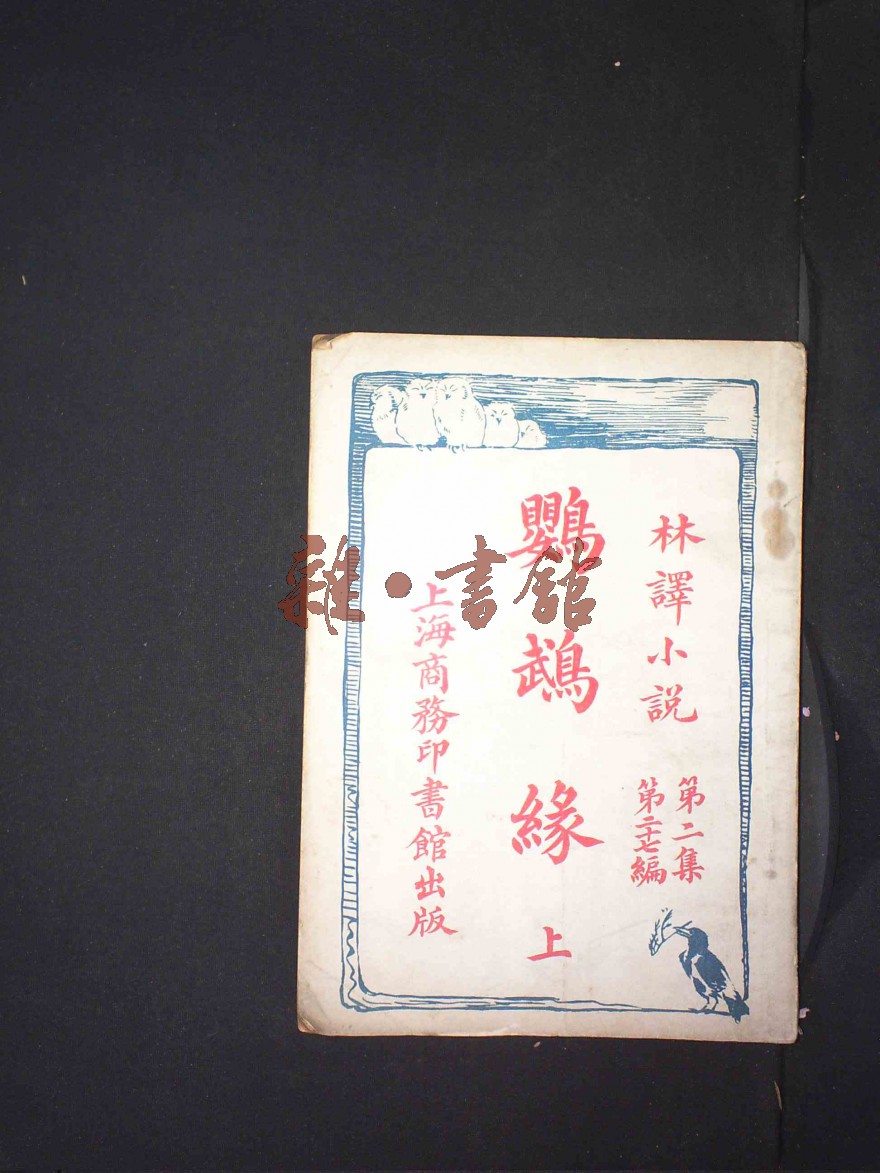 林譯小説
第二集
第二十七編
鸚鵡緣
上
上海商務印書館出版
雜·書館